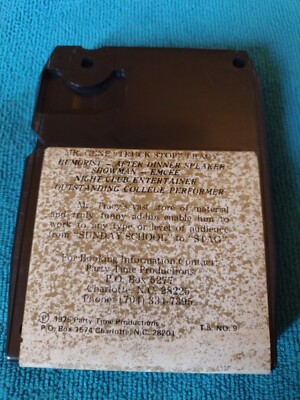 MR. GENE "TRUCK STOP" TRACY
HUMORIST - AFTER DINNER SPEAKER
SHOWMAN - EMCEE
NIGHT CLUB ENTERTAINER
OUTSTANDING COLLEGE PERFORMER
Mr. Tracy's vast store of material
and truly funny ad-libs enable him to
work to any type or level of audience
from "SUNDAY SCHOOL" to "STAG"
For Booking Information Contact:
Party Time Productions
P.O. Box 5275
Charlotte, N.C. 28225
Phone: (704) 334-7395
© 1975 Party Time Productions
P.O. Box 3574 Charlotte, N.C. 28203
T.B. NO. 9